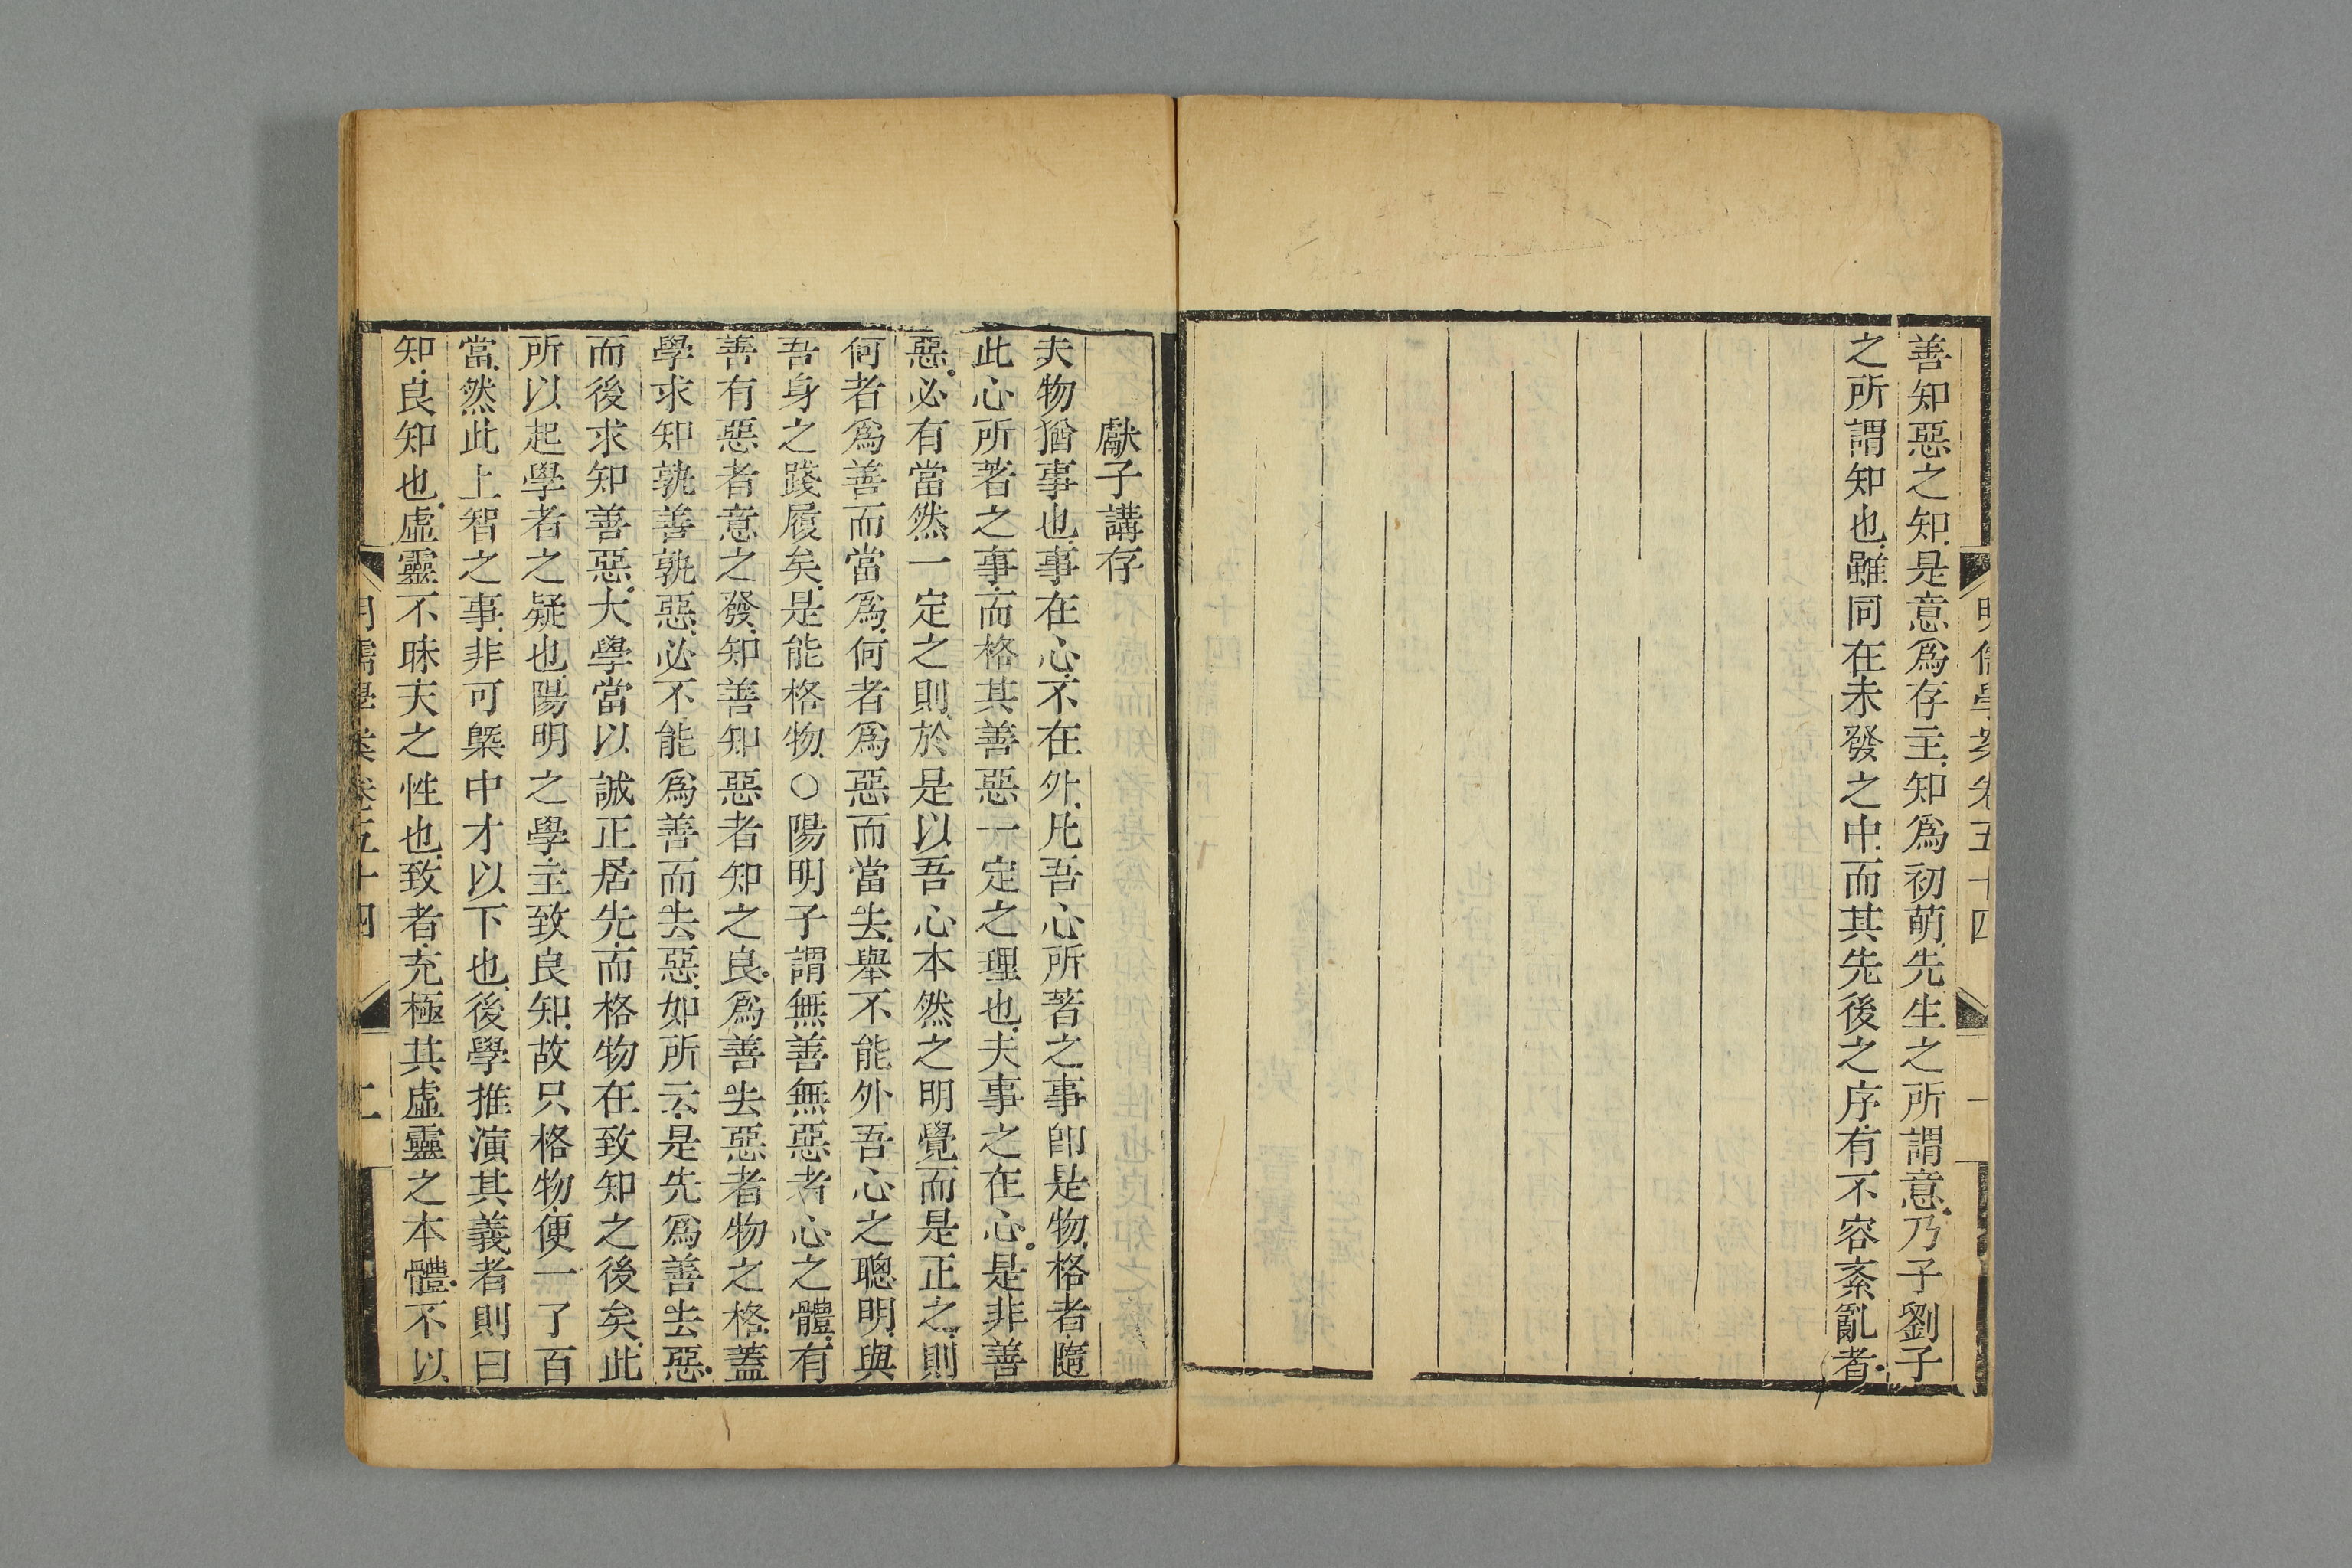 善知惡之知是意爲存主知爲初萌先生之所謂意乃子劉子
之所謂知也雖同在未發之中而其先後之序有不容紊亂者
獻子講存
夫物猶事也事在心不在外凡吾心所著之事卽是物格者隨
此心所著之事而格其善惡一定之理也夫事之在心是非善
惡必有當然一定之則於是以吾心本然之明覺而是正之則
何者爲善而當爲何者爲惡而當去舉不能外吾心之聰明與
吾身之踐履矣是能格物○陽明子謂無善無惡者心之體有
善有惡者意之發知善知惡者知之良爲善去惡者物之格蓋
學求知孰善孰惡必不能爲善而去惡如所云是先爲善去惡
而後求知善惡大學當以誠正居先而格物在致知之後矣此
所以起學者之疑也陽明之學主致良知故只格物便一了百
當然此上智之事非可槩中才以下也後學推演其義者則曰
知良知也虛靈不昧天之性也致者充極其虛靈之本體不以
明儒學案卷五十四